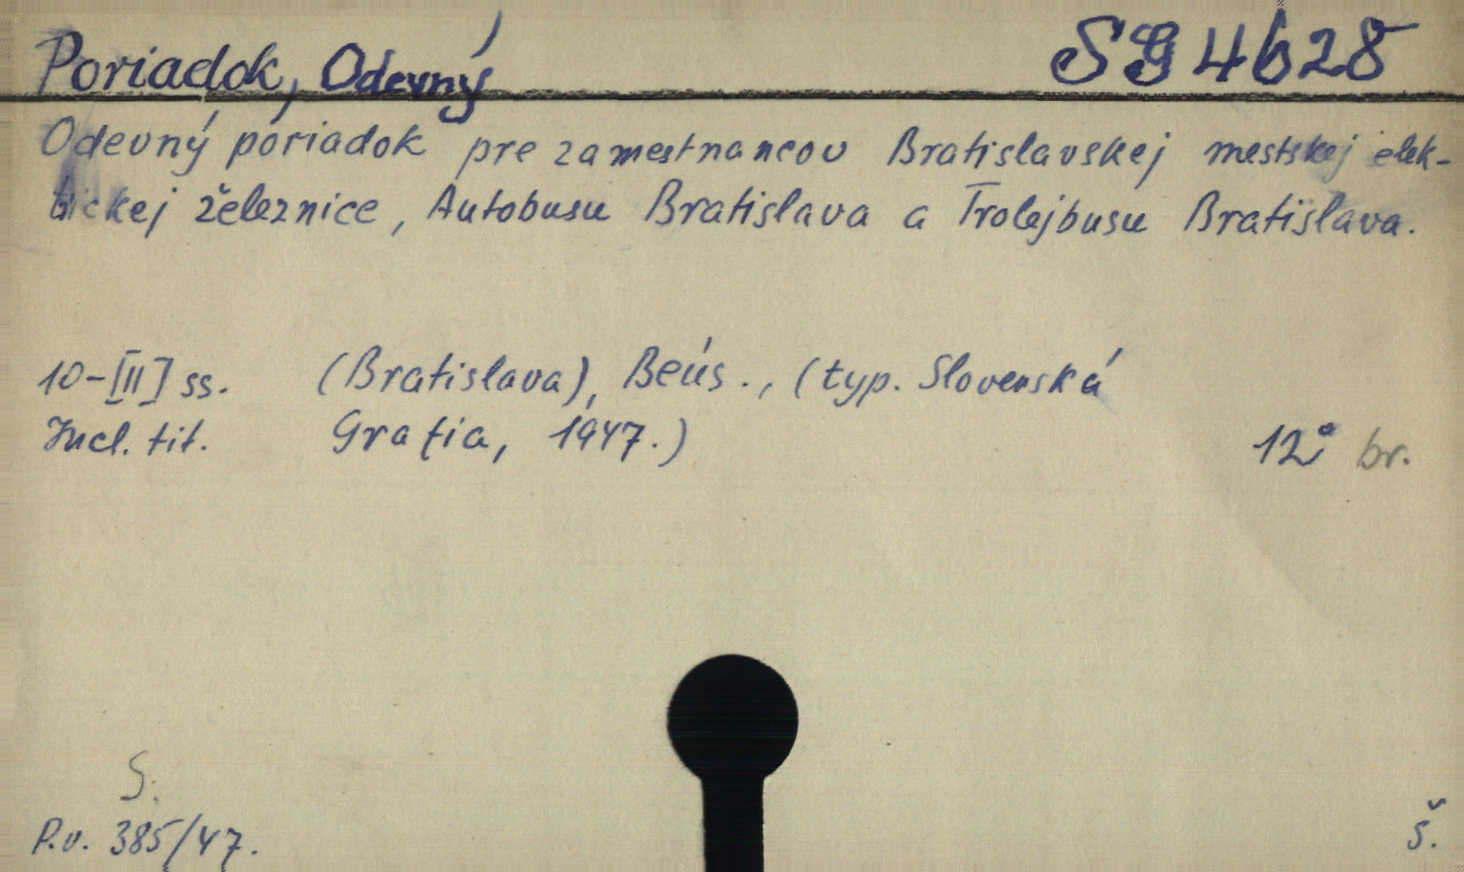 Poriadok, Odevný SG 4628
Odevný poriadok pre zamestnancov Bratislavskej mestskej elek-
trickej železnice, Autobusu Bratislava a Trolejbusu Bratislava.
10-[II] ss. (Bratislava), Beús., (typ. Slovenská
Incl. tit. Grafia, 1947.) 12° br.
S.
P.v. 385/47. š.